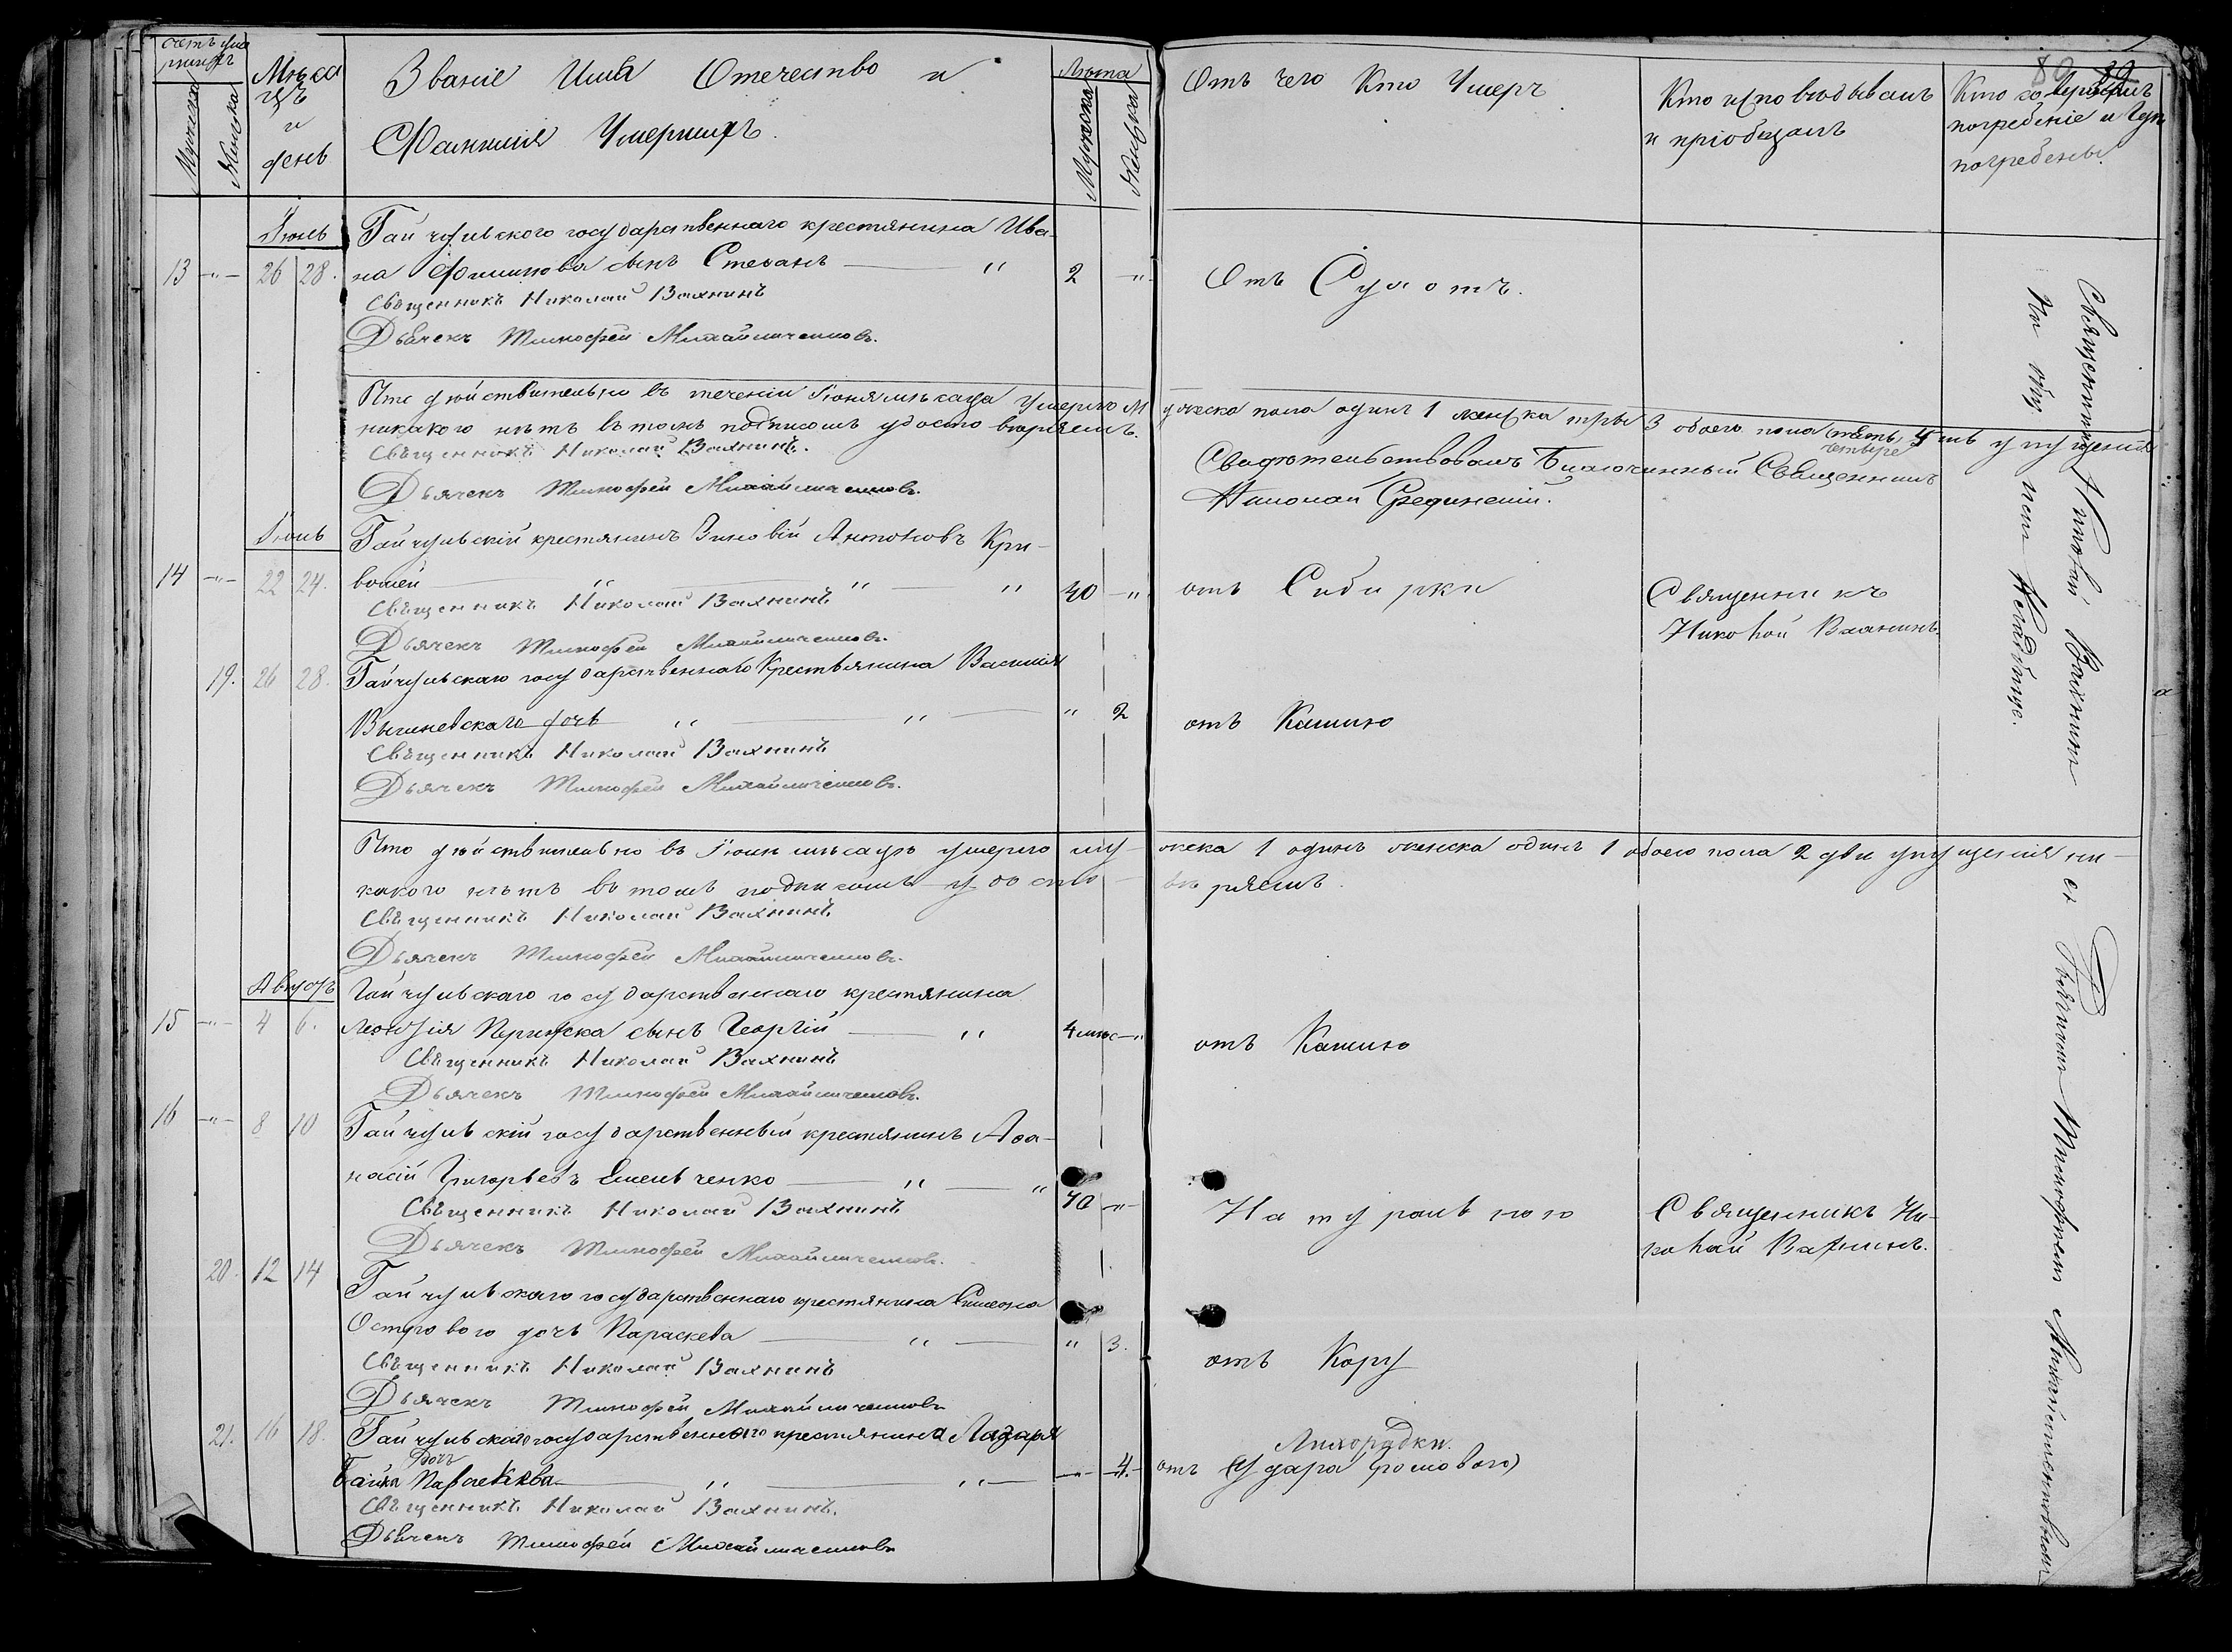 Счетъ умершихъ
Мужеска
Женска
Мѣсяцъ
и
день
Званіе Имя Отечество и
Фамилія Умершихъ.
Лѣта
Мужеска
Женска
Отъ чего Кто Умеръ
Кто исповѣдывалъ
и пріобщалъ
80
Кто совершалъ
погребеніе и гдѣ
погребены.
Іюнь
Гайчульского государственнаго крестянина Ива-
13 -„- 26 28. на Филипова сынъ Стефанъ „ 2 „ Отъ Сухотъ.
Священникъ Николай Вахнинъ
Дьячекъ Тимофей Михайличенковъ.
Что дѣйствительно въ теченіи Іюня мѣсяца умерло мужеска пола одинъ 1 женска тры 3 обоего пола четыре 4 упущенія
никакого нѣтъ въ томъ подписомъ удостовѣряемъ.
Священникъ Николай Вахнинъ.
Дьячекъ Тимофей Михайличенковъ.
Свидѣтельствовалъ Благочинный Священникъ
Николай
Іюль
Гайчульскій крестянинъ Зиновій Антоновъ Кри-
14 -„- 22 24. вошей „ „ „ 40 -„ отъ Сибирки
Священникъ
Николай Вахнинъ.
Священникъ Николай Вахнинъ
Дьячекъ Тимофей Михайличенковъ.
19. 26 28. Гайчульскаго государственнаго Крестьянина Василія
Вышневскаго дочь „ „ „ 2 отъ Кашлю
Священникъ Николай Вахнинъ
Дьячекъ Тимофей Михайличенковъ.
Что дѣйствительно въ Іюлѣ мѣсяцѣ умерло мужеска 1 одинъ женска одинъ 1 обоего пола 2 два упущенія ни-
какого нѣтъ въ томъ подписомъ удостовѣряемъ.
Священникъ Николай Вахнинъ
Дьячекъ Тимофей Михайличенковъ.
Августъ
Гайчульскаго государственнаго крестянина
15 -„- 4 6. сынъ Георгій „ 4 мѣс -„ отъ Кашлю
Священникъ Николай Вахнинъ
Дьячекъ Тимофей Михайличенковъ.
16 -„- 8 10 Гайчульскій государственный крестянинъ Афа-
насій Григорьевъ Емельченко „ „ 70 -„- Натуральною
Священникъ Ни-
колай Вахнинъ.
Священникъ Николай Вахнинъ
Дьячекъ Тимофей Михайличенковъ.
20. 12 14 Гайчульскаго государственнаго крестянина Симеона
Острового дочь Параскева „ „ 3. отъ Кору
Священникъ Николай Вахнинъ
Дьячекъ Тимофей Михайличенковъ
21. 16 18. Гайчульскаго государственного крестянина Лазаря
дочь
Байка Параскева „ „ -„- 4. отъ (Удара громового)
Лихорадки.
Священникъ Николай Вахнинъ.
Дьячекъ Тимофей Михайличенковъ
Священникъ Николай Вахнинъ
На общ. Кладбище.
съ Дьячкомъ Тимофеемъ Михайличенковымъ